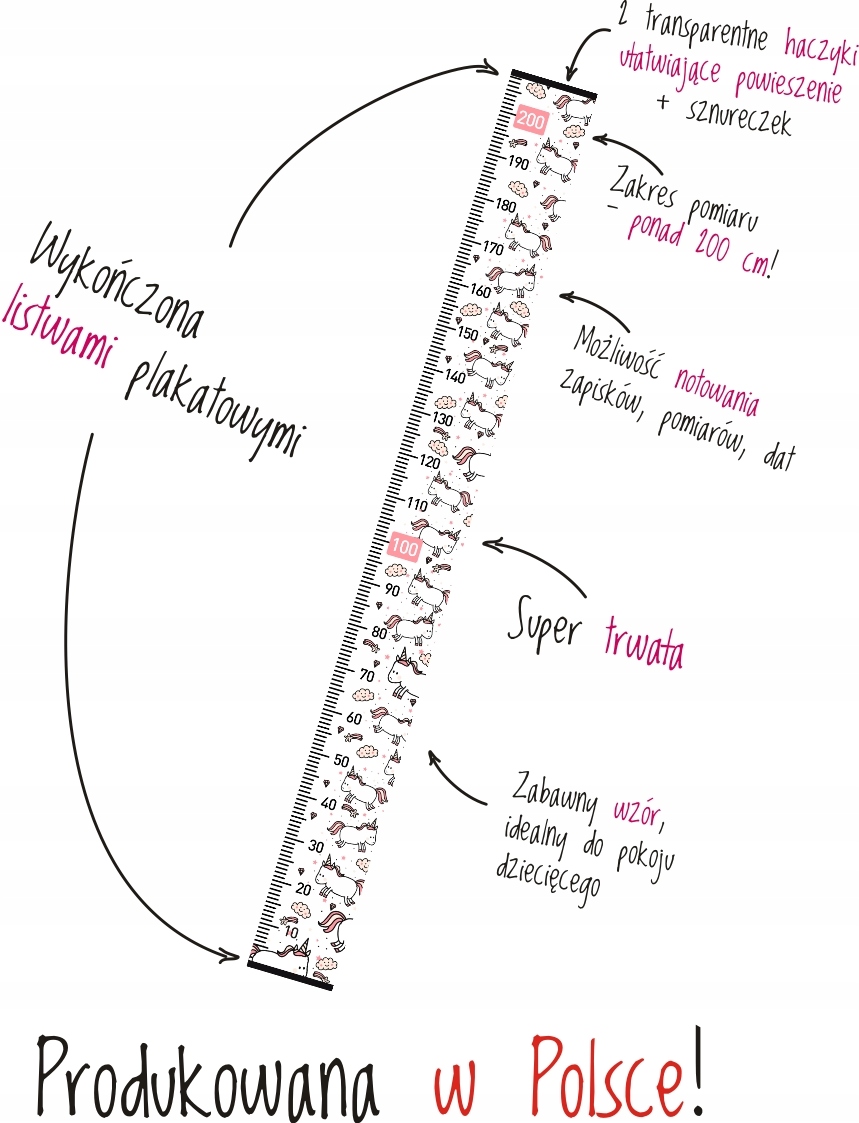 2 transparentne haczyki
ułatwiające powieszenie
+ sznureczek
Zakres pomiaru
- ponad 200 cm!
Wykończona
listwami plakatowymi
Możliwość notowania
zapisków, pomiarów, dat
Super trwała
Zabawny wzór,
idealny do pokoju
dziecięcego
200
190
180
170
160
150
140
130
120
110
100
90
80
70
60
50
40
30
20
10
Produkowana w Polsce!